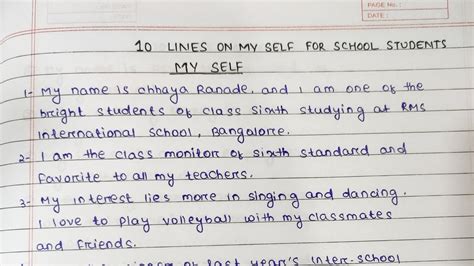 PAGE No.:
DATE:
10 LINES ON MY SELF FOR SCHOOL STUDENTS
MY SELF
1- My name is chhaya Ranade, and I am one of the
bright students of class sixth studying at RMS
International School, Bangalore.
2- I am the class monitor of sixth standard and
favorite to all my teachers.
3- My interest lies more in singing and dancing.
I love to play volleyball with my classmates
and friends.
of last year's inter-school